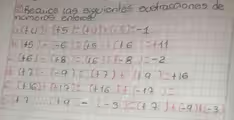 Realice las siguientes sustracciones de
números enteros
(+4) - (+5) = (+4) + (-5) = -1
(+5) - (-6) = (+5) + (+6) = +11
(+6) - (+8) = (+6) + (-8) = -2
(+7) - (-9) = (+7) + (+9) = +16
(+16) - (+17) = (+16) + (-17) =
(+7) - (+9) - (-3) = (+7) + (-9) + (-3)